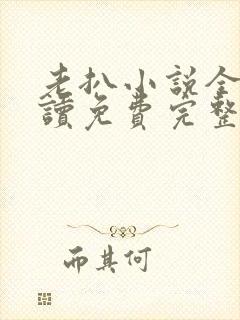 老扒小説全
讀免費完整
而其何